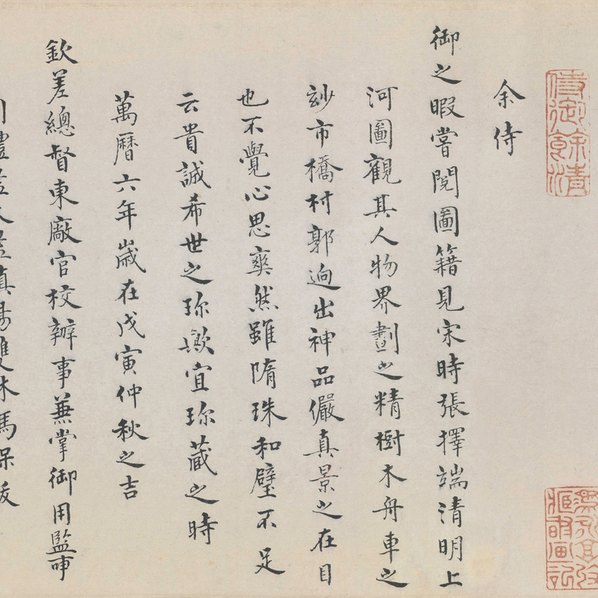 侍御餘清
余侍
御之暇嘗閱圖籍見宋時張擇端清明上
河圖觀其人物界劃之精樹木舟車之
玅市橋村郭逈出神品儼真景之在目
也不覺心思爽然雖隋珠和璧不足
云貴誠希世之珎歟宜珎藏之時
萬曆六年歲在戊寅仲秋之吉
欽差總督東廠官校辦事兼掌御用監事
馮保跋